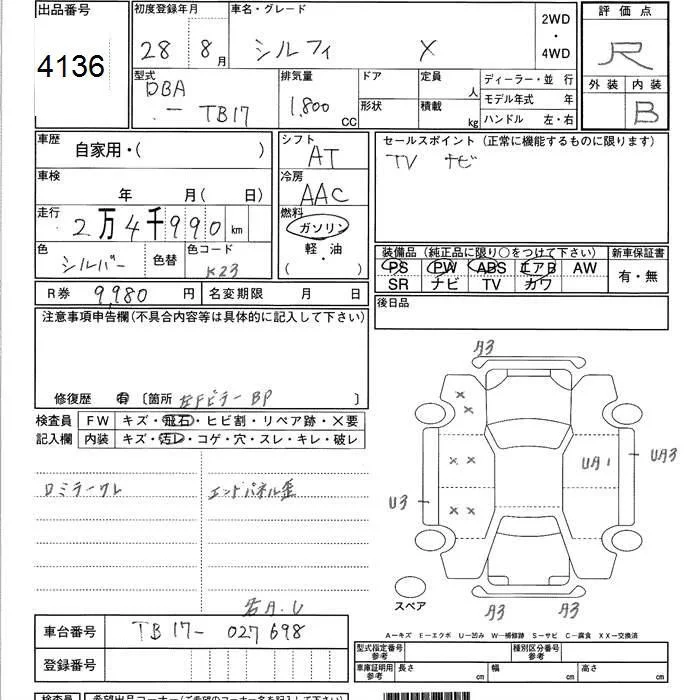 出品番号
4136
初度登録年月
28 8月
車名・グレード
シルフィ X
2WD
・
4WD
評価点
R
外装 内装
B
型式
DBA
－ TB17
排気量
1,800 CC
ドア
形状
定員 人
積載 kg
ディーラー・並 行
モデル年式 年
ハンドル 左・右
車歴
自家用・( )
車検
年 月( 日)
走行
2万4千990km
色
シルバー
色替
色コード
K23
シフト
AT
冷房
AAC
燃料
ガソリン
軽・油
( )
セールスポイント (正常に機能するものに限ります)
TV ナビ
装備品 (純正品に限り○をつけて下さい)
PS PW ABS エアB AW
SR ナビ TV カワ
新車保証書
有・無
後日品
R券 9,980 円 名変期限 月 日
注意事項申告欄(不具合内容等は具体的に記入して下さい)
修復歴 有 〔箇所 左Fピラー BP 〕
検査員
記入欄
FW キズ・飛石・ヒビ割・リペア跡・X要
内装 キズ・汚レ・コゲ・穴・スレ・キレ・破レ
ロミラーワレ
エンドパネル歪
右A.U
A3
X
X
X X
X X
U3
UA1
UA3
A3
A3
スペア
A－キズ E－エクボ U－凹み W－補修跡 S－サビ C－腐食 XX－交換済
車台番号 TB17- 027698
登録番号
型式指定番号
参考
種別区分番号
参考
車庫証明用
参考
長さ cm 幅 cm 高さ cm
検査員 希望出品コーナー(ご希望のコーナー名を記入下さい)